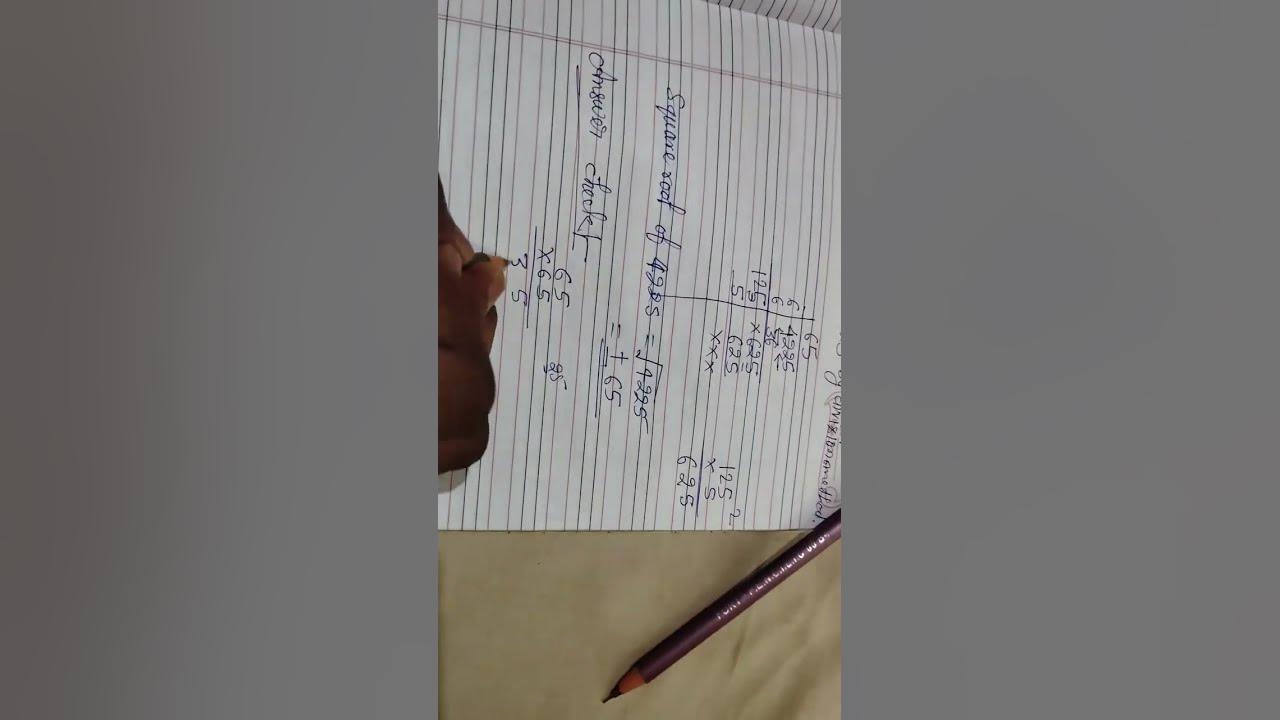 by division method.
65
6 4225
6 36
125 × 625
5 625
×××
125 2
× 5
625
Square root of 4225 = √4225
= ± 65
Answer check:-
65 25
×65
3 5